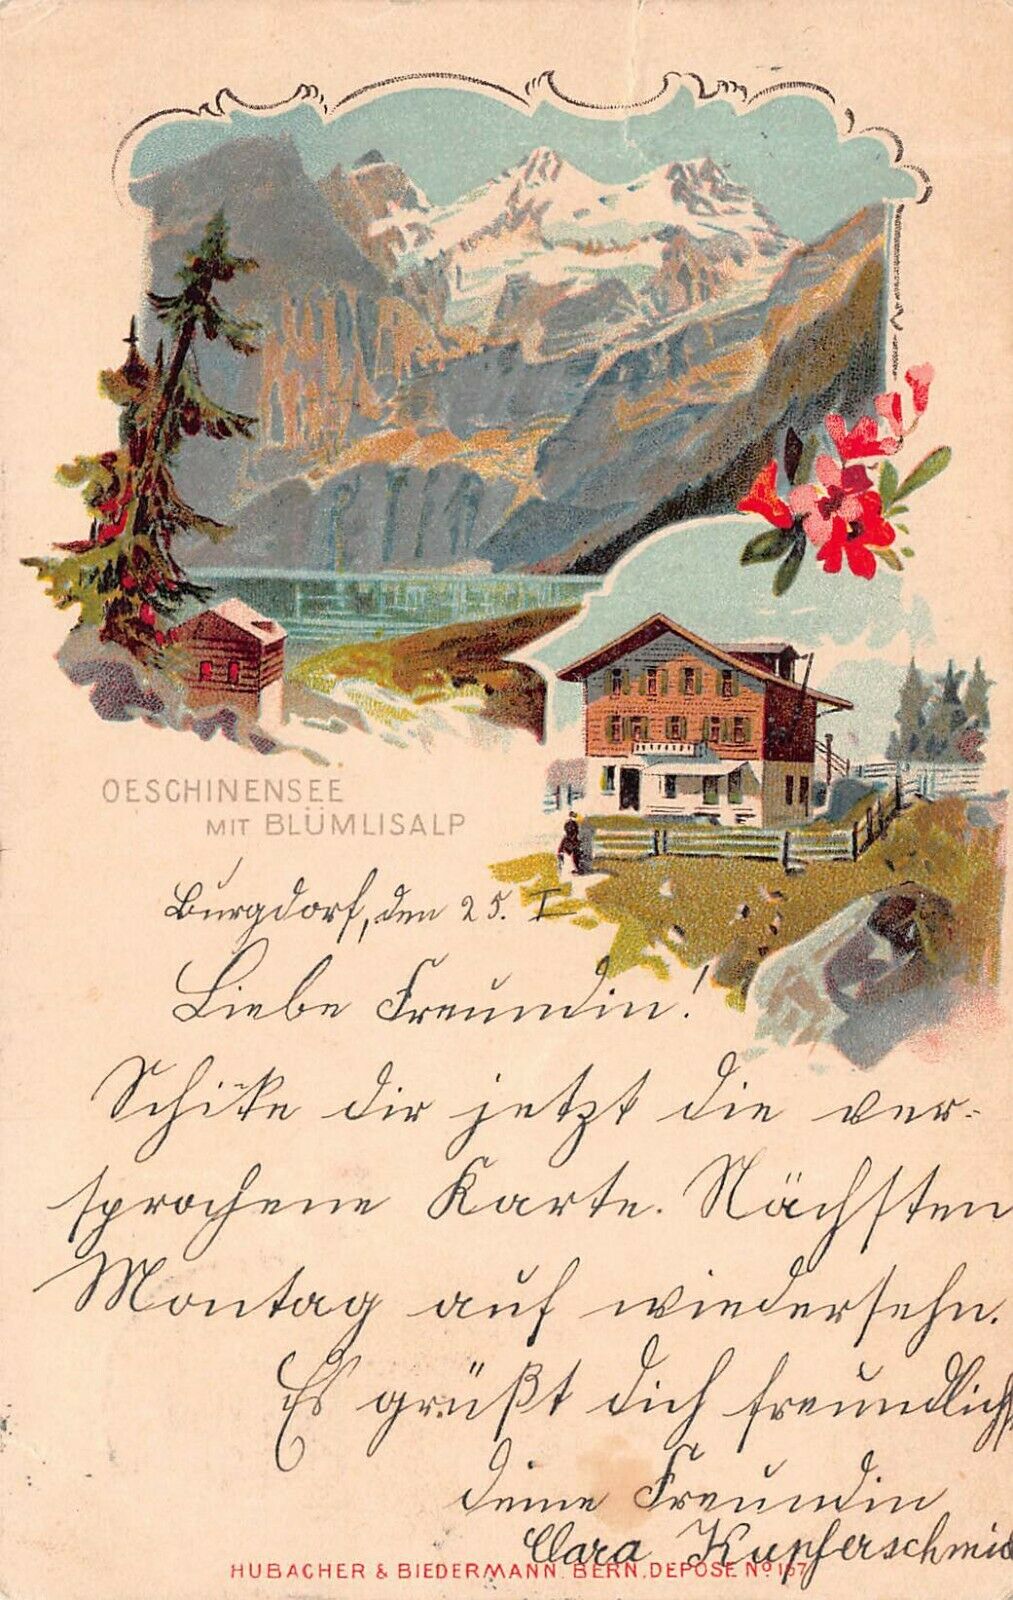 OESCHINENSEE
MIT BLÜMLISALP
Burgdorf, den 25. I
Liebe Freundin!
Schike dir jetzt die ver-
sprochene Karte. Nächsten
Montag auf wiedersehn.
Es grüßt dich freundlichst
deine Freundin
Clara Kupferschmid
HUBACHER & BIEDERMANN. BERN, DEPOSE No 167